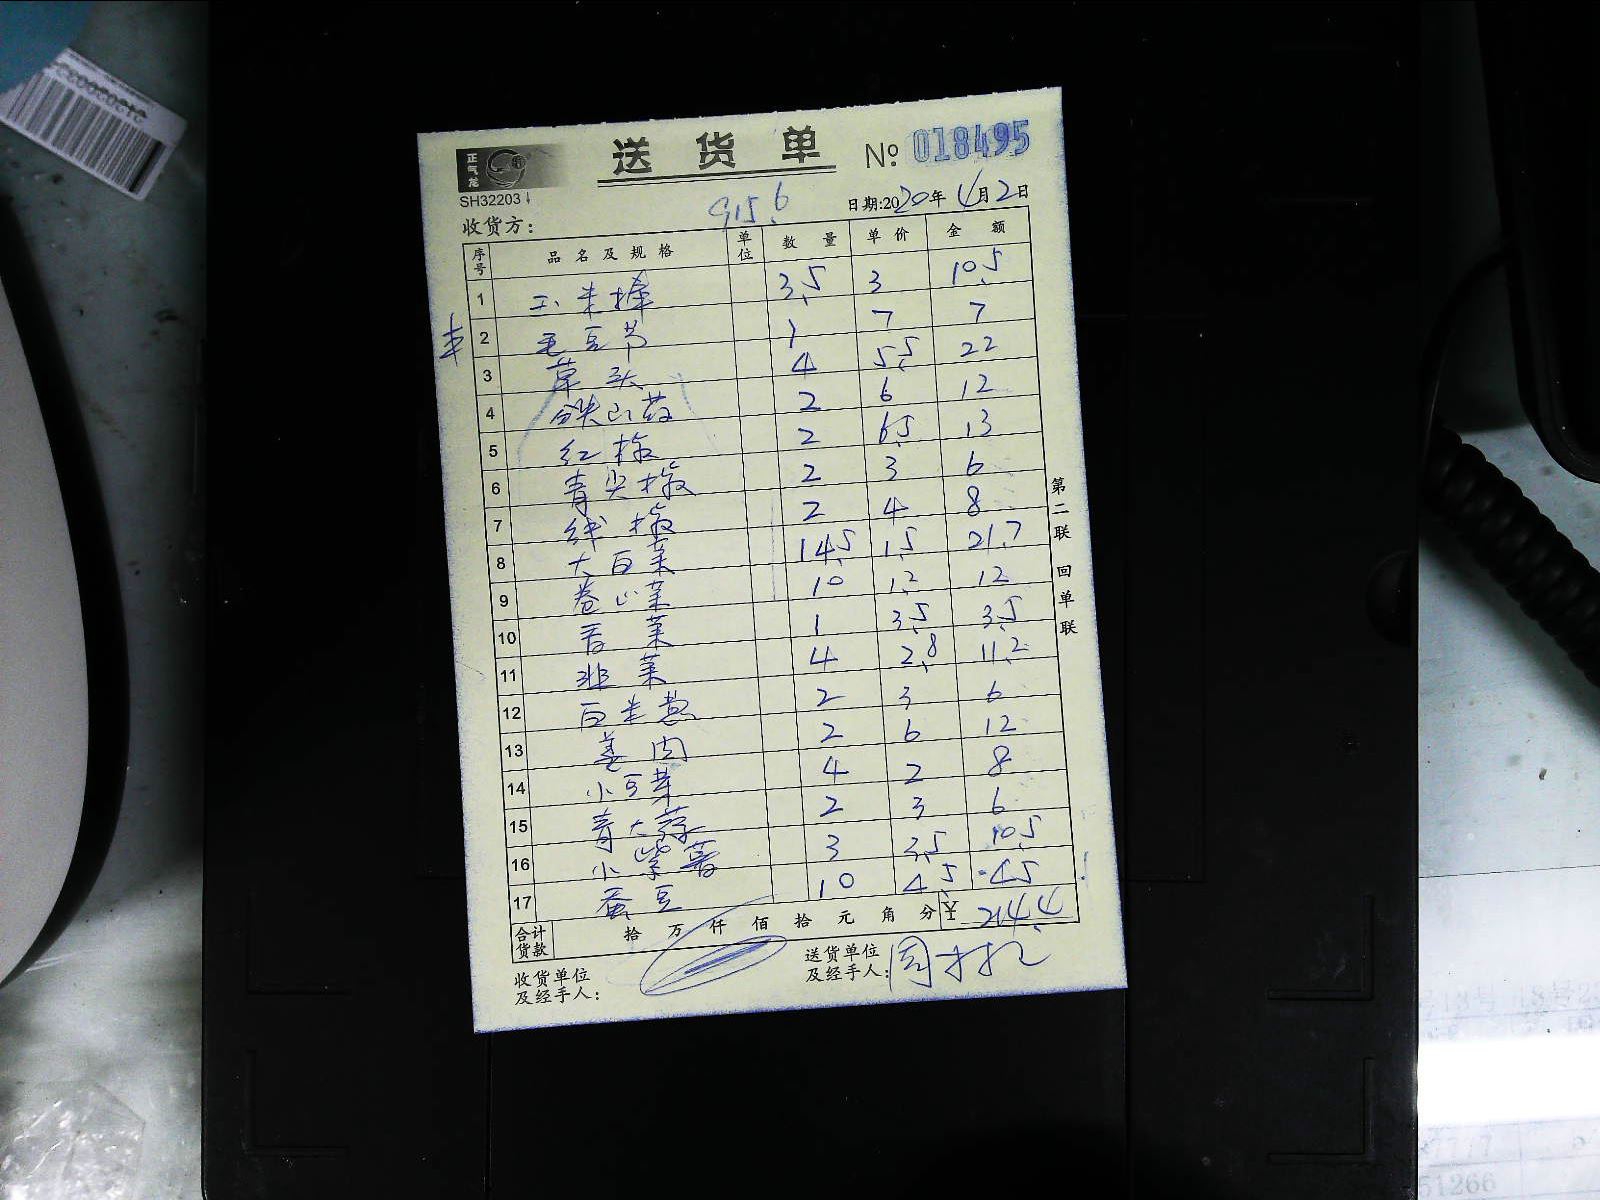 正气龙
送货单 № 018495
SH32203
915.6 日期:2020年4月2日
收货方:
序号 品名及规格 单位 数量 单价 金额
1 玉米棒 3.5 3 10.5
2 毛豆节 1 7 7
3 草头 4 5.5 22
4 铁山药 2 6 12
5 红椒 2 6.5 13
6 青尖椒 2 3 6
7 线椒 2 4 8
8 大白菜 14.5 1.5 21.7
9 卷心菜 10 1.2 12
10 香菜 1 3.5 3.5
11 韭菜 4 2.8 11.2
12 白米葱 2 3 6
13 姜肉 2 6 12
14 小豆芽 4 2 8
15 青大蒜 2 3 6
16 小紫薯 3 3.5 10.5
17 蚕豆 10 4.5 45
合计货款 拾 万 仟 佰 拾 元 角 分 ¥ 214.4
收货单位及经手人:
送货单位及经手人:
第二联 回单联